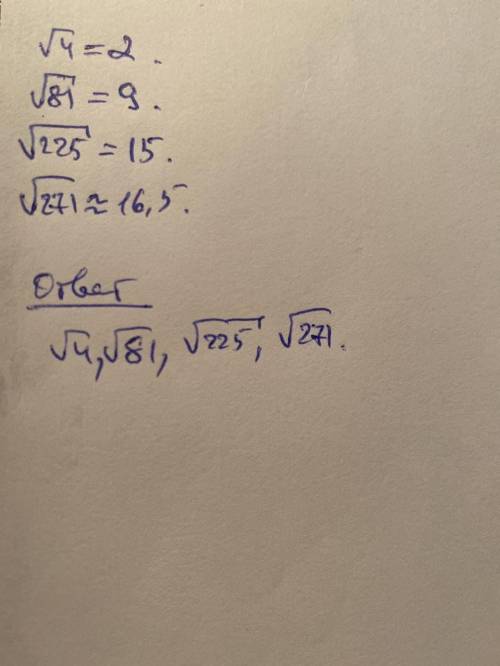 √4 = 2.
√81 = 9.
√225 = 15.
√271 ≈ 16,5.
Ответ
√4, √81, √225, √271.